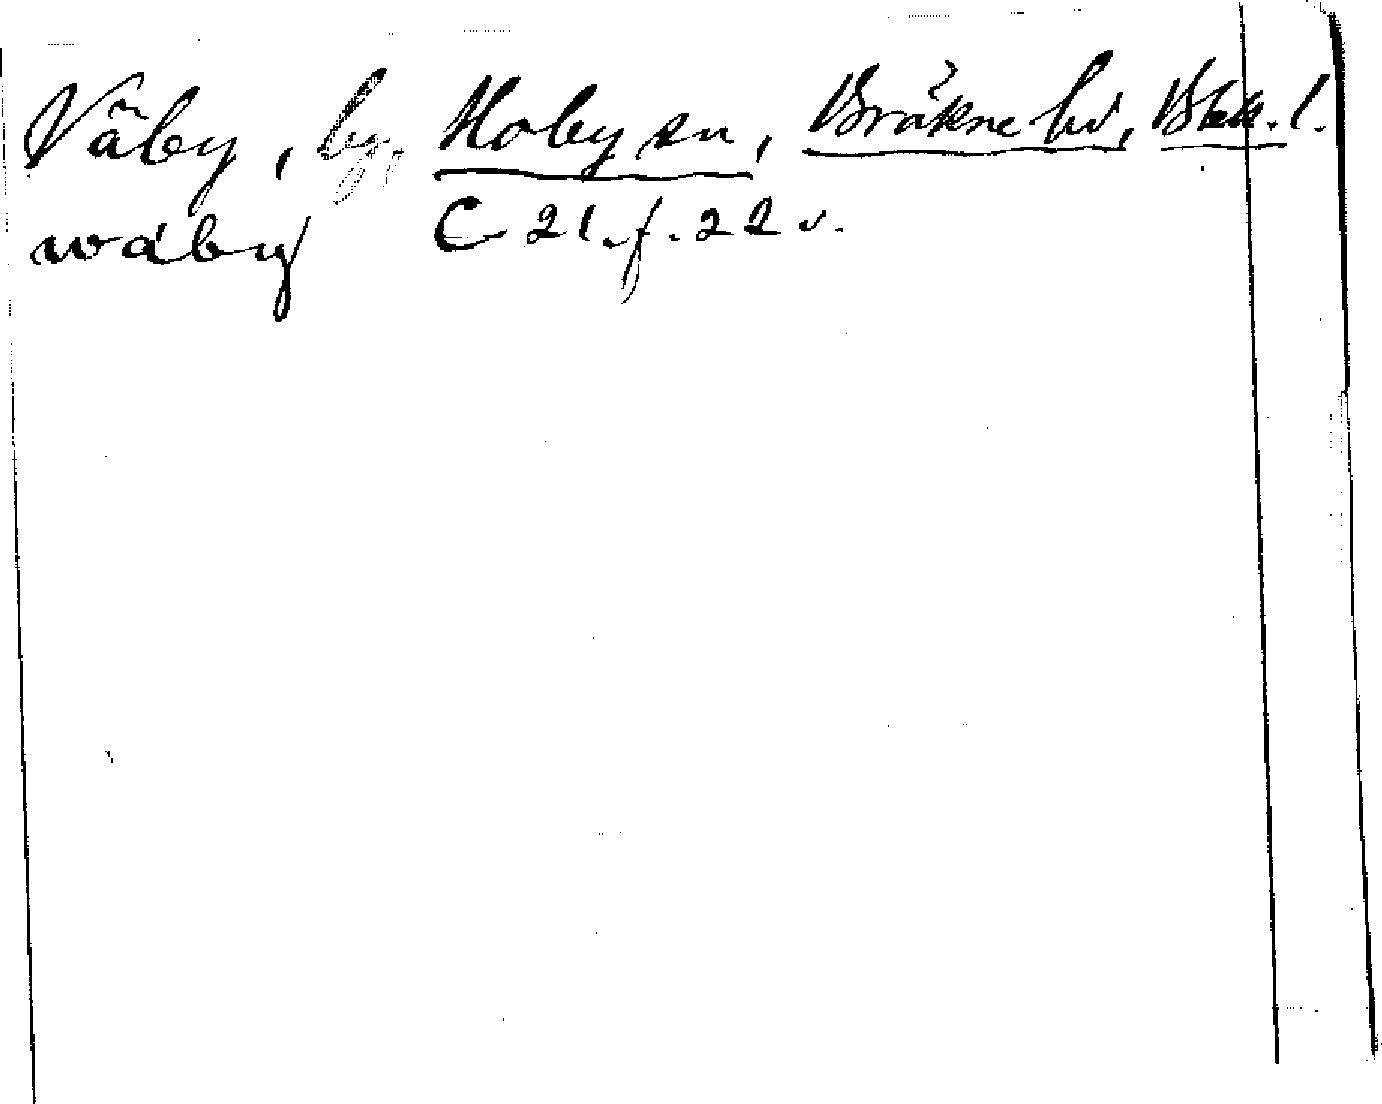 Väby, by, Hoby sn, Bräkne hd, Blek. l.
wäby C 21. f. 22 v.